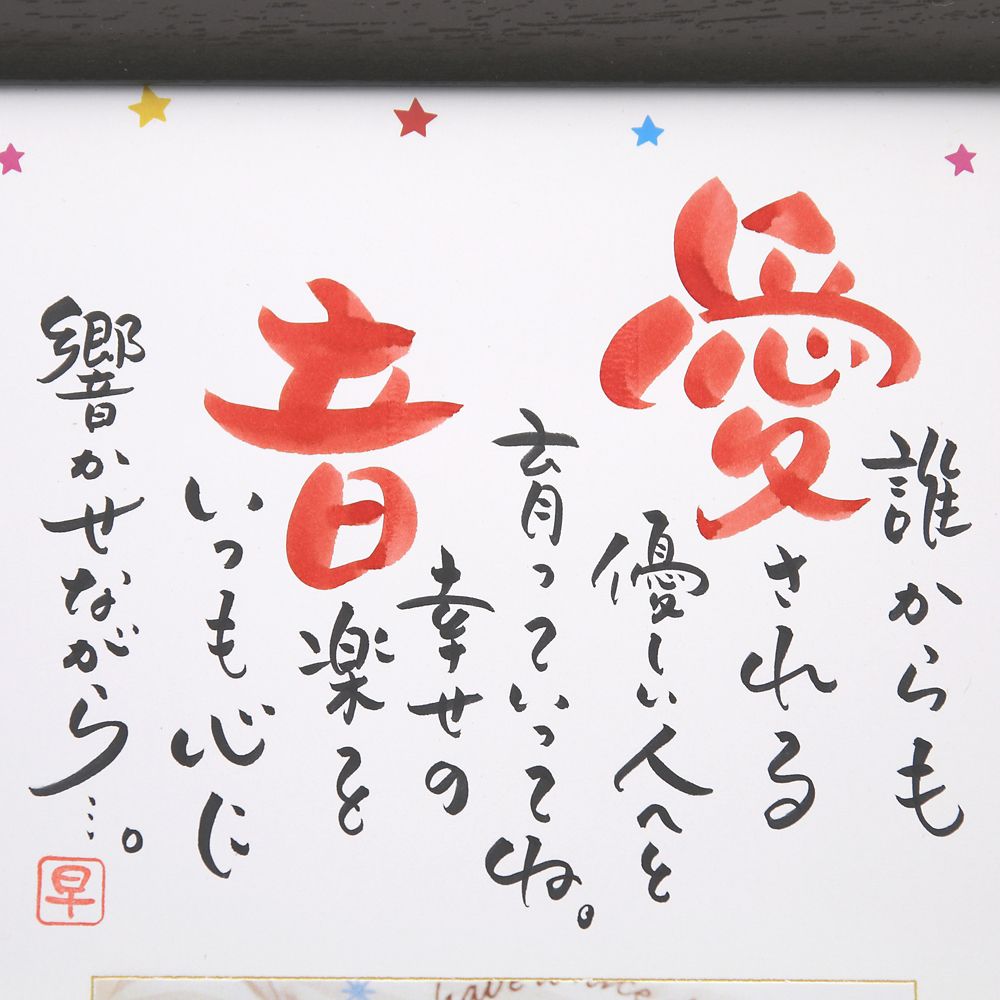 誰からも
愛される
優しい人へと
育っていってね。
幸せの
音楽を
いつも心に
響かせながら…。
早
have a nice